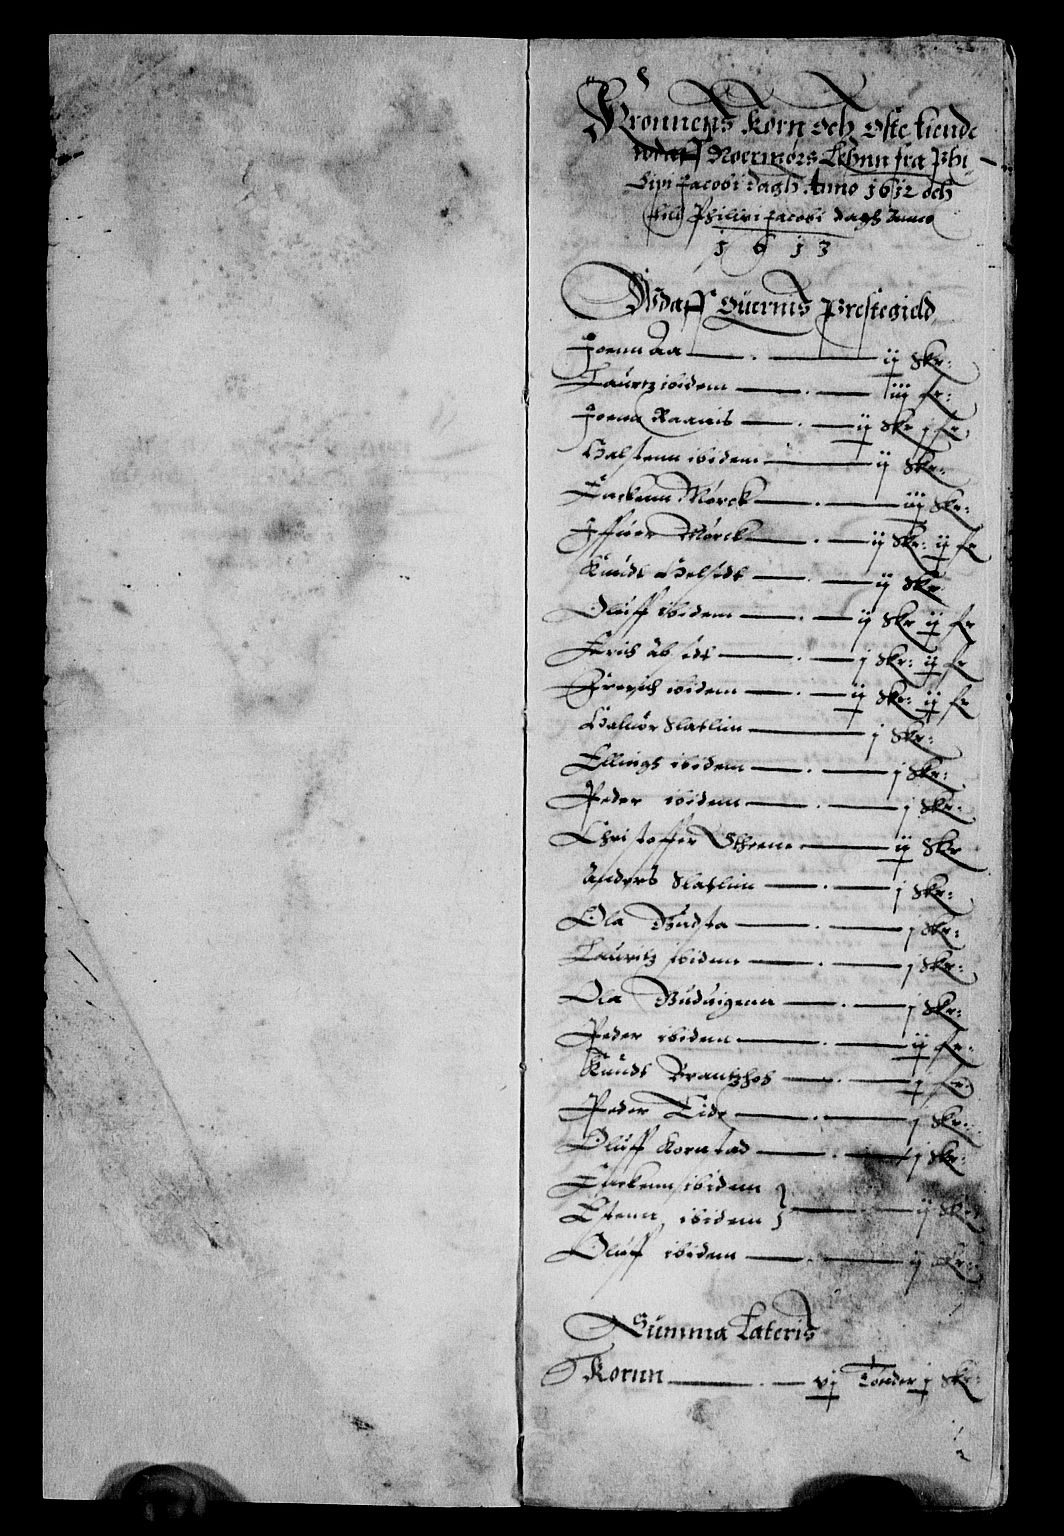 Kronnens Korn och Oste tiende
wdaff Noermørs Lehnn fra Phi
lipi Jacobi dagh Anno 1612 och
till Philipi Jacobi dagh Anno
1613
Wdaff Quernis Prestegield
Joenn Aa — ij skr:
Lauritz ibidem — iiij fr:
Joenn Raanis — ij skr j fr
Halstenn ibidem — ij skr:
Mørck — iij skr:
Iffuer Mørck — ij skr: ij fr
Knuds — ij skr
Oluff ibidem — ij skr ij fr
Erich — j skr: ij fr
ibidem — ij skr: ij fr
Haluor Slatlim — j skr:
Ellings ibidem — j skr:
Peder ibidem — j skr:
Christoffer — ij skr
Anders Slatlim — j skr:
Ola Budta — j skr:
Lauritz ibidem — j skr:
Ola — j skr:
Peder ibidem — ij fr:
Knuds — fr:
Peder Eide — j skr:
Oluff Kornstad — j skr:
ibidem
Estenn ibidem } — ij skr:
Oluff ibidem — ij skr:
Summa Lateris
Kornn — vj Tønder j skr: